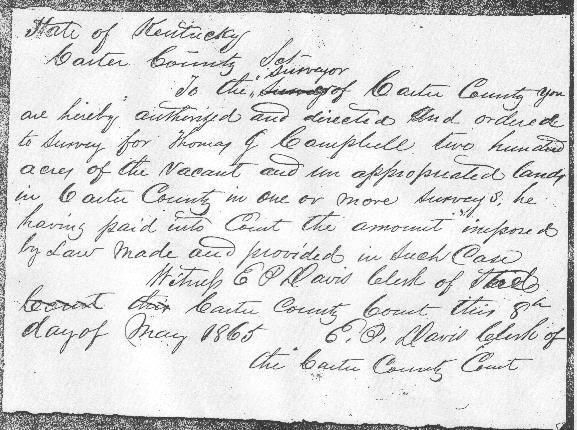 State of Kentucky
Carter County Sct
To the Surveyor of Carter County you
are hereby authorized and directed and ordered
to Survey for Thomas G Campbell two hundred
acres of the Vacant and un appropriated lands
in Carter County in one or more Surveys, he
having paid into Court the amount imposed
by Law made and provided in Such Case
Witness E P Davis Clerk of the
Court this Carter County Court this 8th
day of May 1865 E. P. Davis Clerk of
the Carter County Court